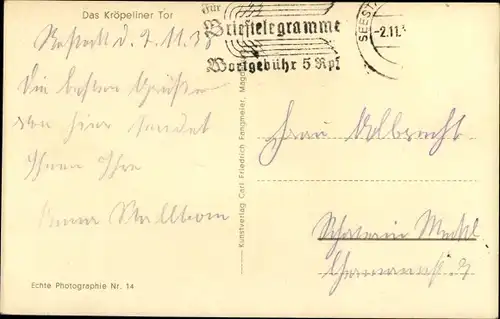 Das Kröpeliner Tor
Für
Brieftelegramme
Wortgebühr 5 Rpf
SEEST
-2.11.
Rostock d. 2.11.38
Die besten Grüße
von hier sendet
Ihnen Ihre
Anna
Frau Albrecht
Schwerin Meckl
Kunstverlag Carl Friedrich Fangmeier, Magd
Echte Photographie Nr. 14